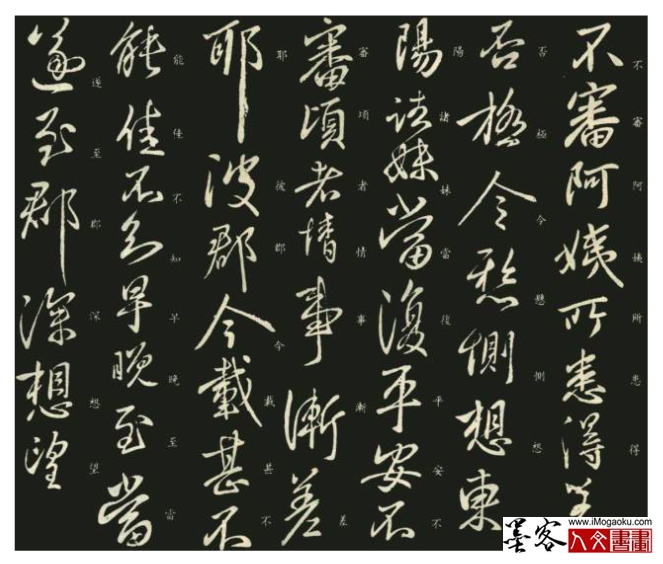 不審阿姨所患得差
不審阿姨所患得
否極令懸惻想東
否極今懸惻想
陽諸妹當復平安不
陽諸妹當復平安不
審頃者情事漸差
審項者情事漸差
耶彼郡今載甚不
耶彼郡今載甚不
能佳不知早晚至當
能佳不知早晚至當
遂至郡深想望
遂至郡深想望
墨客
www.iMogaoku.com
人文書畫